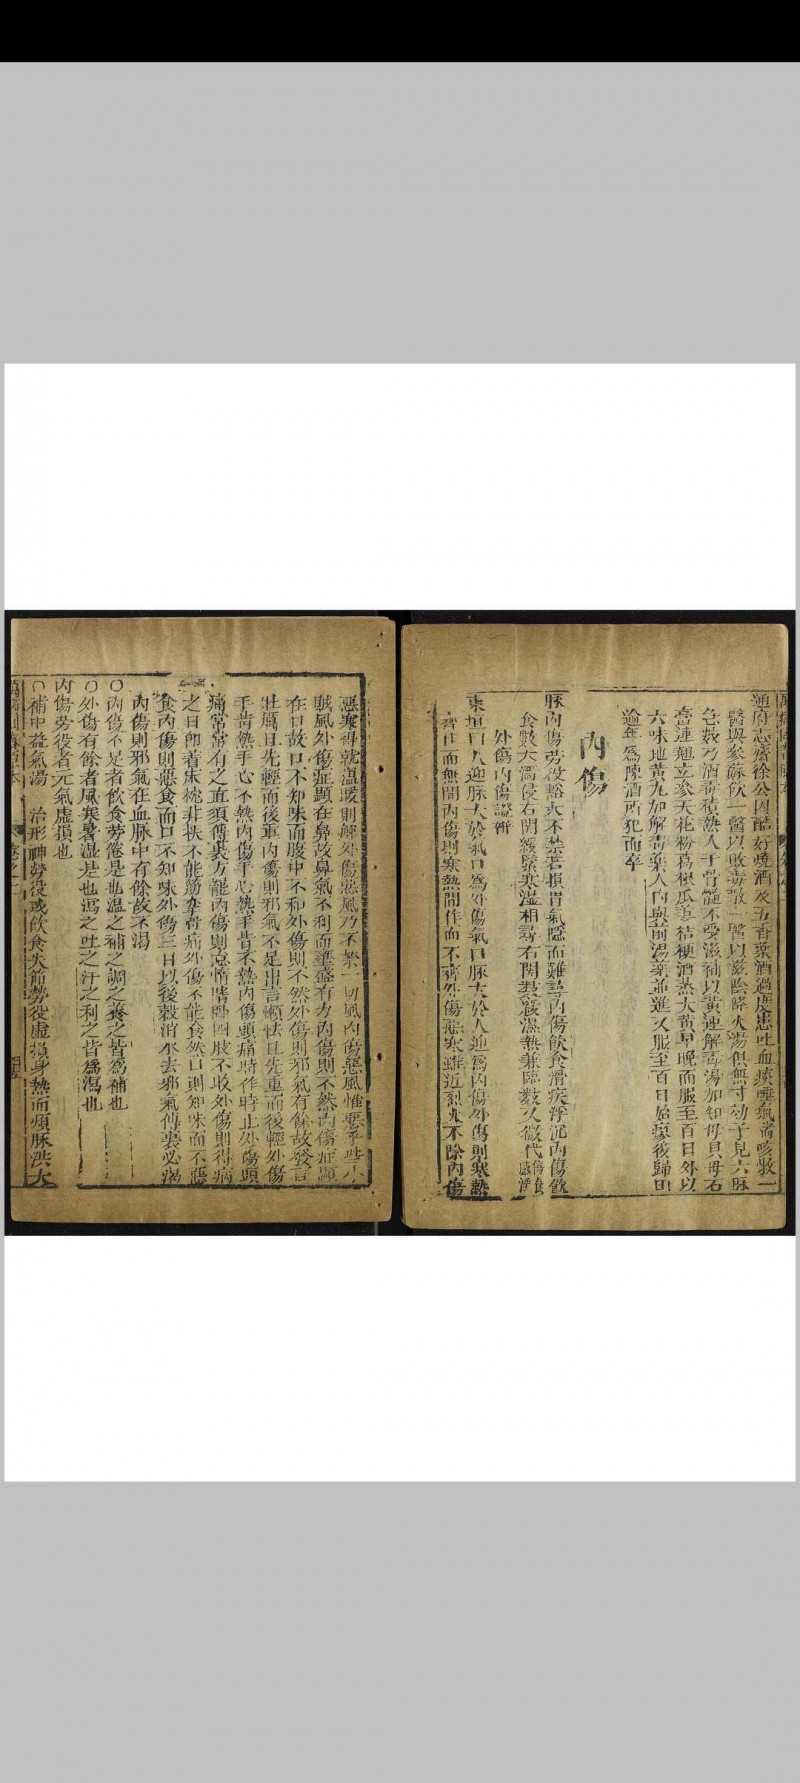 通府志齋徐公因酷好燒酒及五香藥酒過度患吐血痰唾氣喘咳嗽一
醫與參蘇飲一醫以敗毒散一醫以滋陰降火湯俱無寸効予見六脉
急數乃酒毒積熱入于骨髓不受滋補以黃連解毒湯加知母貝母石
膏連翹玄參天花粉葛根瓜蔞桔梗酒蒸大黃早晚而服至百日外以
六味地黃丸加解毒藥入內與前湯藥並進又服至百日始瘳後歸田
逾年爲陳酒所犯而卒
內傷
脉內傷勞役豁大不禁若損胃氣隱而難尋內傷飲食滑疾浮沉內傷飲
食數大濇侵右關緩緊寒濕相尋右關數緩濕熱兼臨數又微代傷食感淫
外傷內傷證辨
東垣曰人迎脉大於氣口爲外傷氣口脉大於人迎爲內傷外傷則寒熱
齊作而無間內傷則寒熱間作而不齊外傷惡寒雖近烈火不除內傷
惡寒得就溫暖則解外傷惡風乃不禁一切風內傷惡風惟惡乎些小
賊風外傷症顯在鼻故鼻氣不利而壅盛有力內傷則不然內傷症顯
在口故口不知味而腹中不和外傷則不然外傷則邪氣有餘故發言
壯厲且先輕而後重內傷則邪氣不足出言懶怯且先重而後輕外傷
手背熱手心不熱內傷手心熱手背不熱內傷頭痛時作時止外傷頭
痛常常有之直須傳裏方罷內傷則怠惰嗜卧四肢不收外傷則得病
之日即着床枕非扶不能筋攣骨痛外傷不能食然口則知味而不惡
食內傷則惡食而口不知味外傷三日以後穀消水去邪氣傳裏必渴
內傷則邪氣在血脉中有餘故不渴
○內傷不足者飲食勞倦是也溫之補之調之養之皆爲補也
○外傷有餘者風寒暑湿是也瀉之吐之汗之利之皆爲瀉也
內傷勞役者元氣虛損也
○補中益氣湯 治形神勞役或飲食失節勞役虛損身熱而煩脉洪大